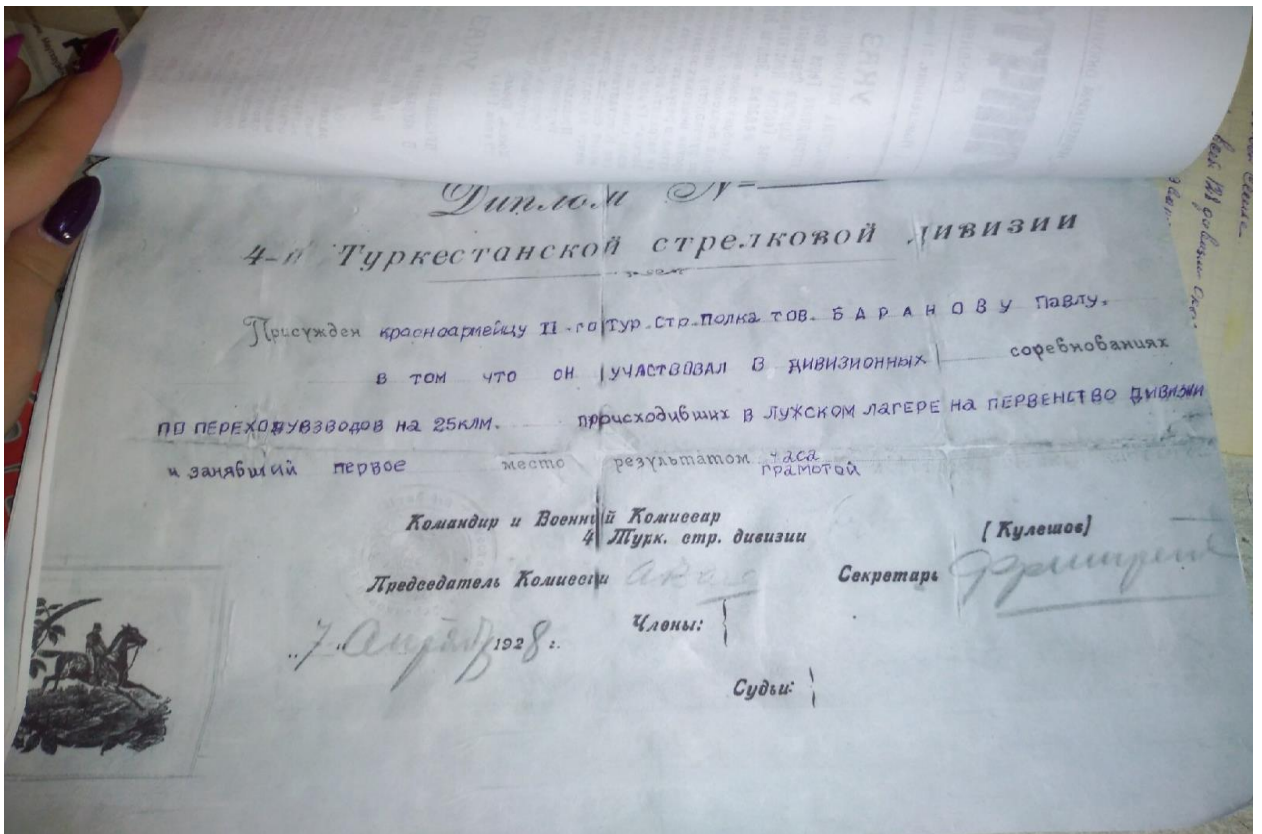 Диплом №
4-й Туркестанской стрелковой дивизии
Присужден красноармейцу II-го Тур. Стр. Полка тов. БАРАНОВУ Павлу.
в том что он УЧАСТВОВАЛ В ДИВИЗИОННЫХ соревнованиях
ПО ПЕРЕХОДУ ВЗВОДОВ на 25клм. происходивших в ЛУЖСКОМ ЛАГЕРЕ на ПЕРВЕНСТВО ДИВИЗИИ
и занявший первое место результатом часа
грамотой
Командир и Военный Комиссар
4 Турк. стр. дивизии
[Кулешов]
Председатель Комиссии
Секретарь
Члены:
„7" 1928 г.
Судьи: